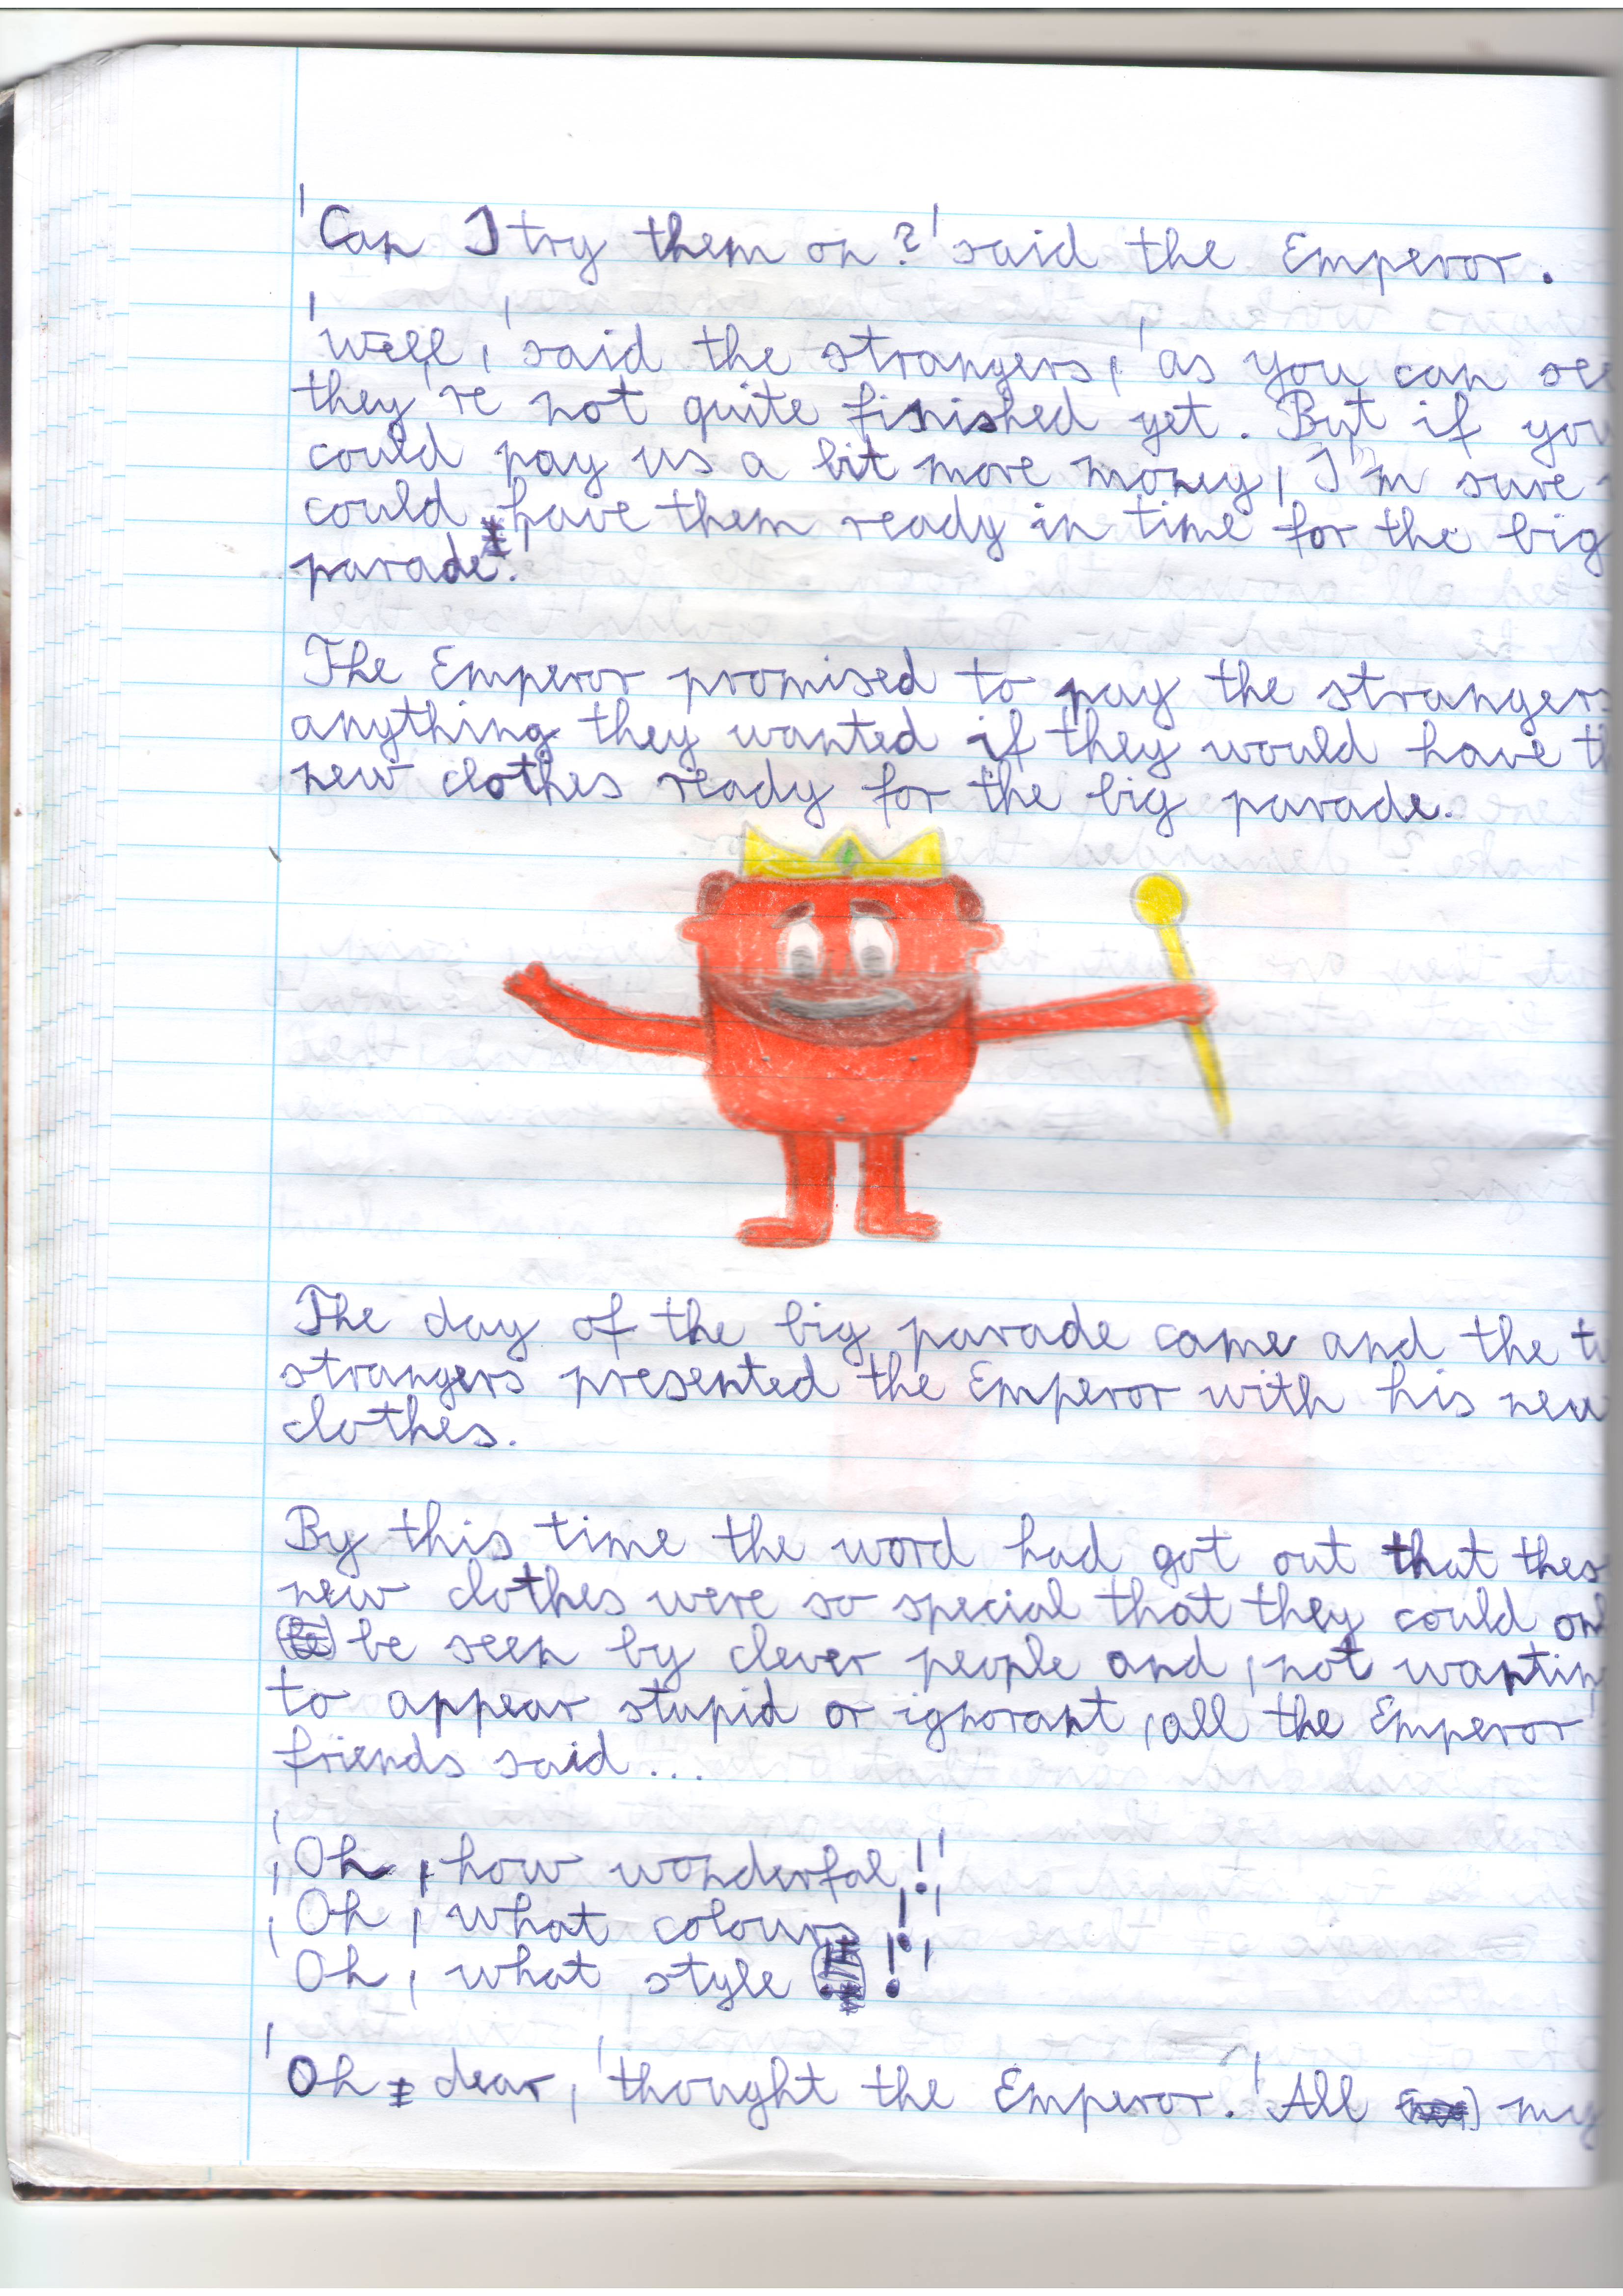 'Can I try them on?' said the Emperor.
'Well,' said the strangers, 'as you can see
they're not quite finished yet. But if you
could pay us a bit more money, I'm sure
could have them ready in time for the big
parade.'
The Emperor promised to pay the strangers
anything they wanted if they would have th
new clothes ready for the big parade.
The day of the big parade came and the tw
strangers presented the Emperor with his new
clothes.
By this time the word had got out that thes
new clothes were so special that they could onl
be seen by clever people and, not wanting
to appear stupid or ignorant, all the Emperor
friends said...
'Oh, how wonderful!'
'Oh, what colours!'
'Oh, what style!'
'Oh dear,' thought the Emperor. 'All my